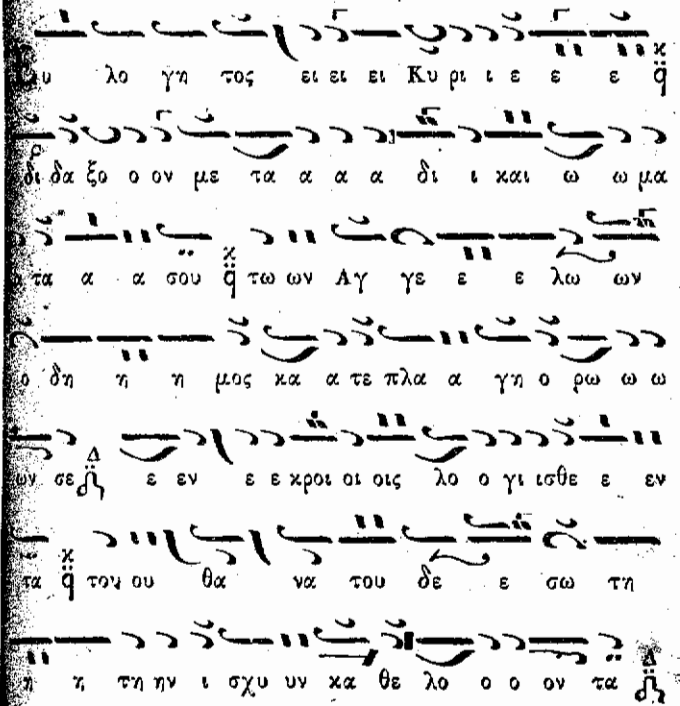 Ευ λο γη τος ει ει ει Κυ ρι ι ε ε ε
δι δα ξο ο ον με τα α α α δι ι και ω ω μα
τα α α σου τω ων Αγ γε ε ε λω ων
ο δη η η μος κα α τε πλα α γη ο ρω ω ω
ων σε ε εν ε ε κροι οι οις λο ο γι ισθε ε εν
τα τον ου θα να του δε ε σω τη
η η τη ην ι σχυ υν κα θε λο ο ο ον τα